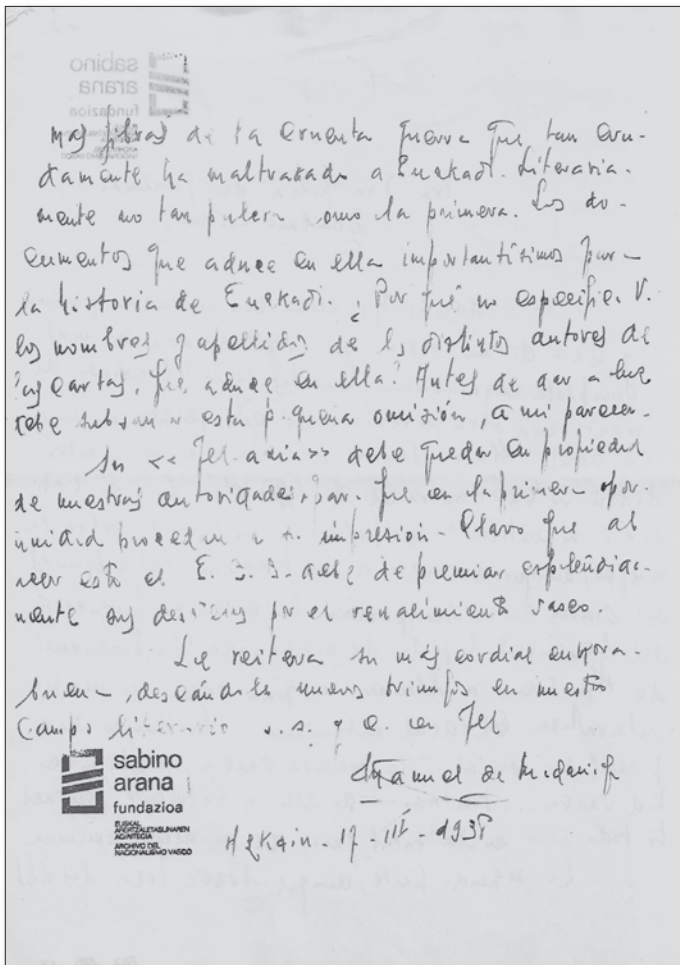 sabino
arana
fundazioa
mas fibras de la cruenta guerra que tan cru-
damente ha maltratado a Euzkadi. Literaria-
mente no tan pulcra como la primera. Los do-
cumentos que aduce en ella importantísimos par
la historia de Euzkadi. ¿Por qué no especifica V.
los nombres y apellidos de los distintos autores de
las cartas, que aduce en ella? Antes de dar a luz
debe subsanar esta pequeña omisión, a mi parecer.
Su << >> debe quedar en propiedad
de nuestras autoridades, para que en la primera opor-
tunidad procedan a su impresión. Claro que al
hacer esto el E. B. B. debe de premiar espléndida-
mente sus desvelos por el renacimiento vasco.
Le reitera su más cordial enhora-
buena, deseándole nuevos triunfos en nuestro
Campo literario s. s. y a. en Jel
Manuel de
17 - III - 193
sabino
arana
fundazioa
EUSKAL
ABERTZALETASUNAREN
AGIRITEGIA
ARCHIVO DEL
NACIONALISMO VASCO